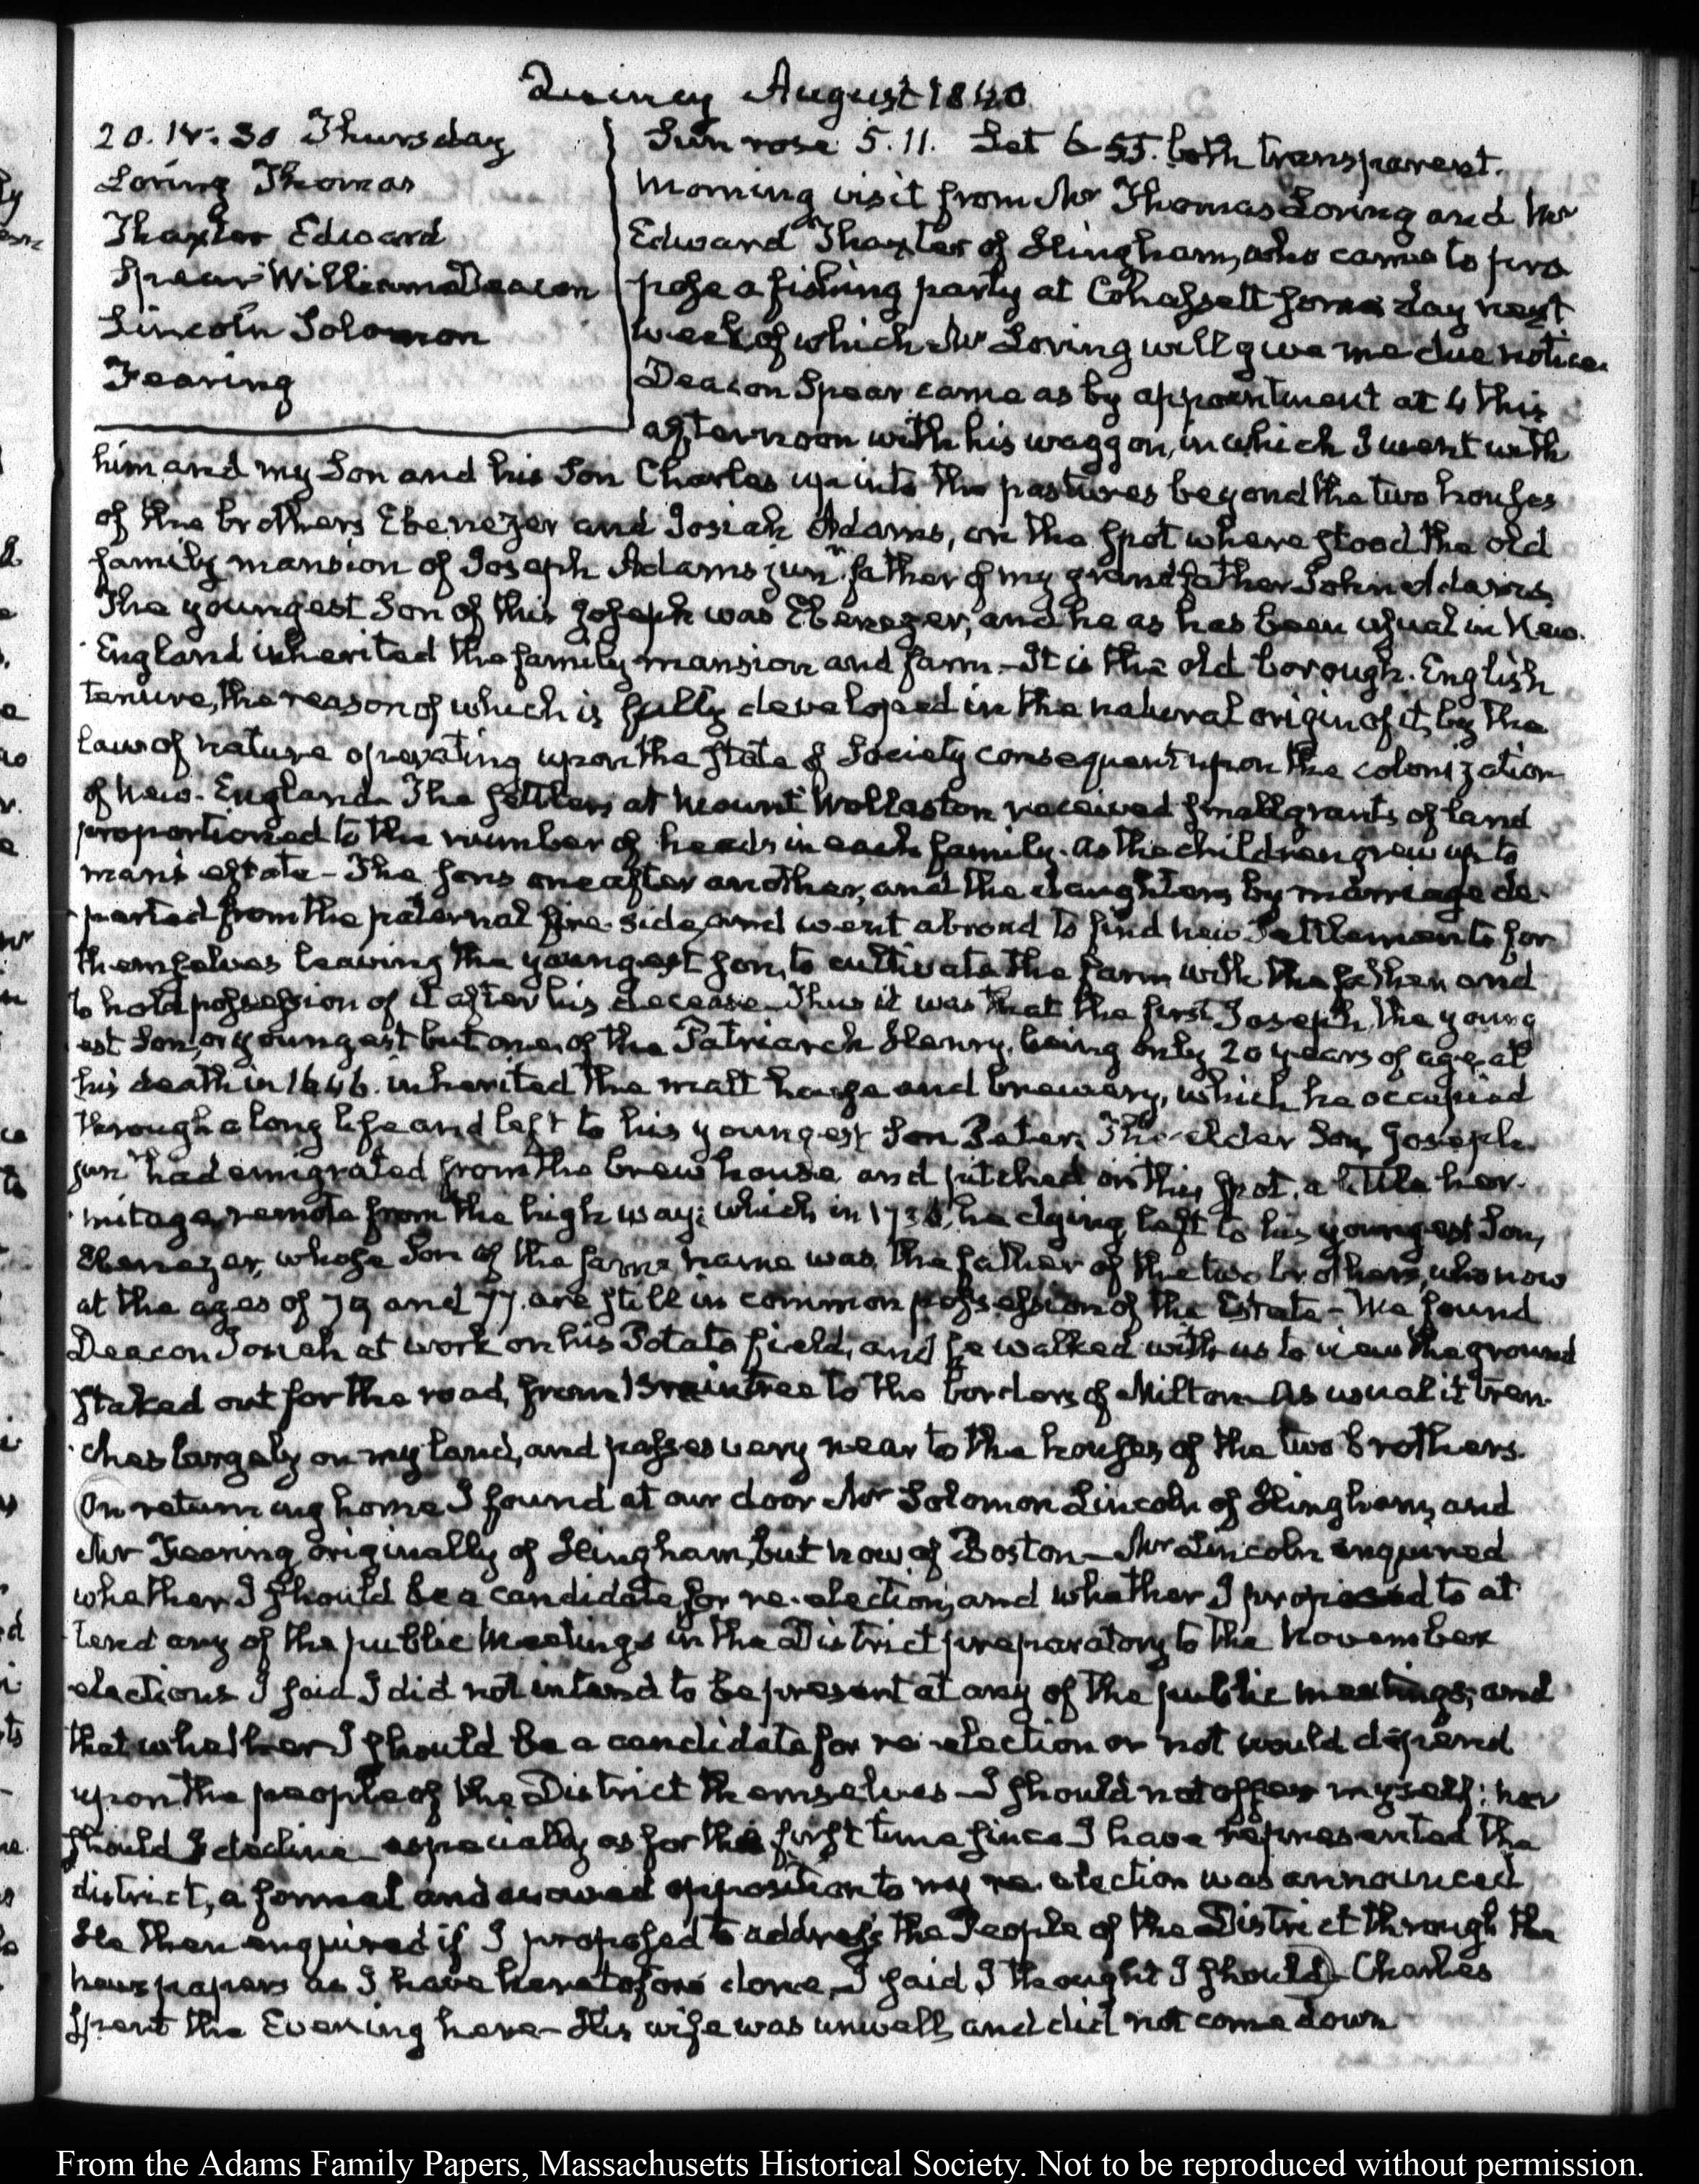 Quincy August 1840
20. IV:30 Thursday
Loring Thomas
Thaxter Edward
Spear William Deacon
Lincoln Solomon
Fearing
Sun rose 5.11. Set 6-55. both transparent.
Morning visit from Mr Thomas Loring and Mr
Edward Thaxter of Hingham, who came to pro
pose a fishing party at Cohassett some day next
week, of which Mr Loring will give me due notice.
Deacon Spear came as by appointment at 4 this
afternoon with his waggon, in which I went with
him and my Son and his Son Charles up into the pastures beyond the two houses
of the brothers Ebenezer and Josiah Adams, on the spot where stood the old
family mansion of Joseph Adams junr. father of my grandfather John Adams,
The youngest Son of this Joseph was Ebenezer, and he as has been usual in New-
England inherited the family mansion and farm — It is the old borough-English
tenure, the reason of which is fully developed in the natural origin of it, by the
law of nature operating upon the state of Society consequent upon the colonization
of New-England — The settlers at Mount Wollaston received small grants of land
proportioned to the number of heads in each family. As the children grew up to
man's estate — The sons one after another, and the daughters by marriage de-
parted from the paternal fire-side, and went abroad to find new Settlements for
themselves leaving the youngest son, to cultivate the farm with the father and
to hold possession of it after his decease — Thus it was that the first Joseph, the young
est Son, or youngest but one, of the Patriarch Henry, being only 20 years of age, at
his death in 1646. inherited the malt house and brewery, which he occupied
through a long life and left to his youngest Son Peter. The elder Son, Joseph
junr had emigrated from the brew house, and pitched on this spot, a little her-
mitage, remote from the high way; which in 1736, he dying left to his youngest Son,
Ebenezer, whose Son of the same name was the father of the two brothers, who now
at the ages of 79 and 77. are still in common possession of the Estate — We found
Deacon Josiah at work on his Potato field, and he walked with us to view the ground
staked out for the road, from Braintree to the borders of Milton — As usual it tren-
ches largely on my land, and passes very near to the houses of the two Brothers.
On returning home I found at our door Mr Solomon Lincoln of Hingham, and
Mr Fearing, originally of Hingham, but now of Boston — Mr Lincoln enquired
whether I should be a candidate for re-election, and whether I proposed to at
tend any of the public Meetings in the District preparatory to the November
elections I said I did not intend to be present at any of the public meetings, and
that whether I should be a candidate for re-election or not would depend
upon the people of the District themselves — I should not offer myself; nor
should I decline — especially as for the first time since I have represented the
district, a formal and avowed opposition to my re-election was announced
He then enquired if I proposed to address the People of the District through the
newspapers as I have heretofore done, I said I thought I should — Charles
spent the Evening here — His wife was unwell, and did not come down